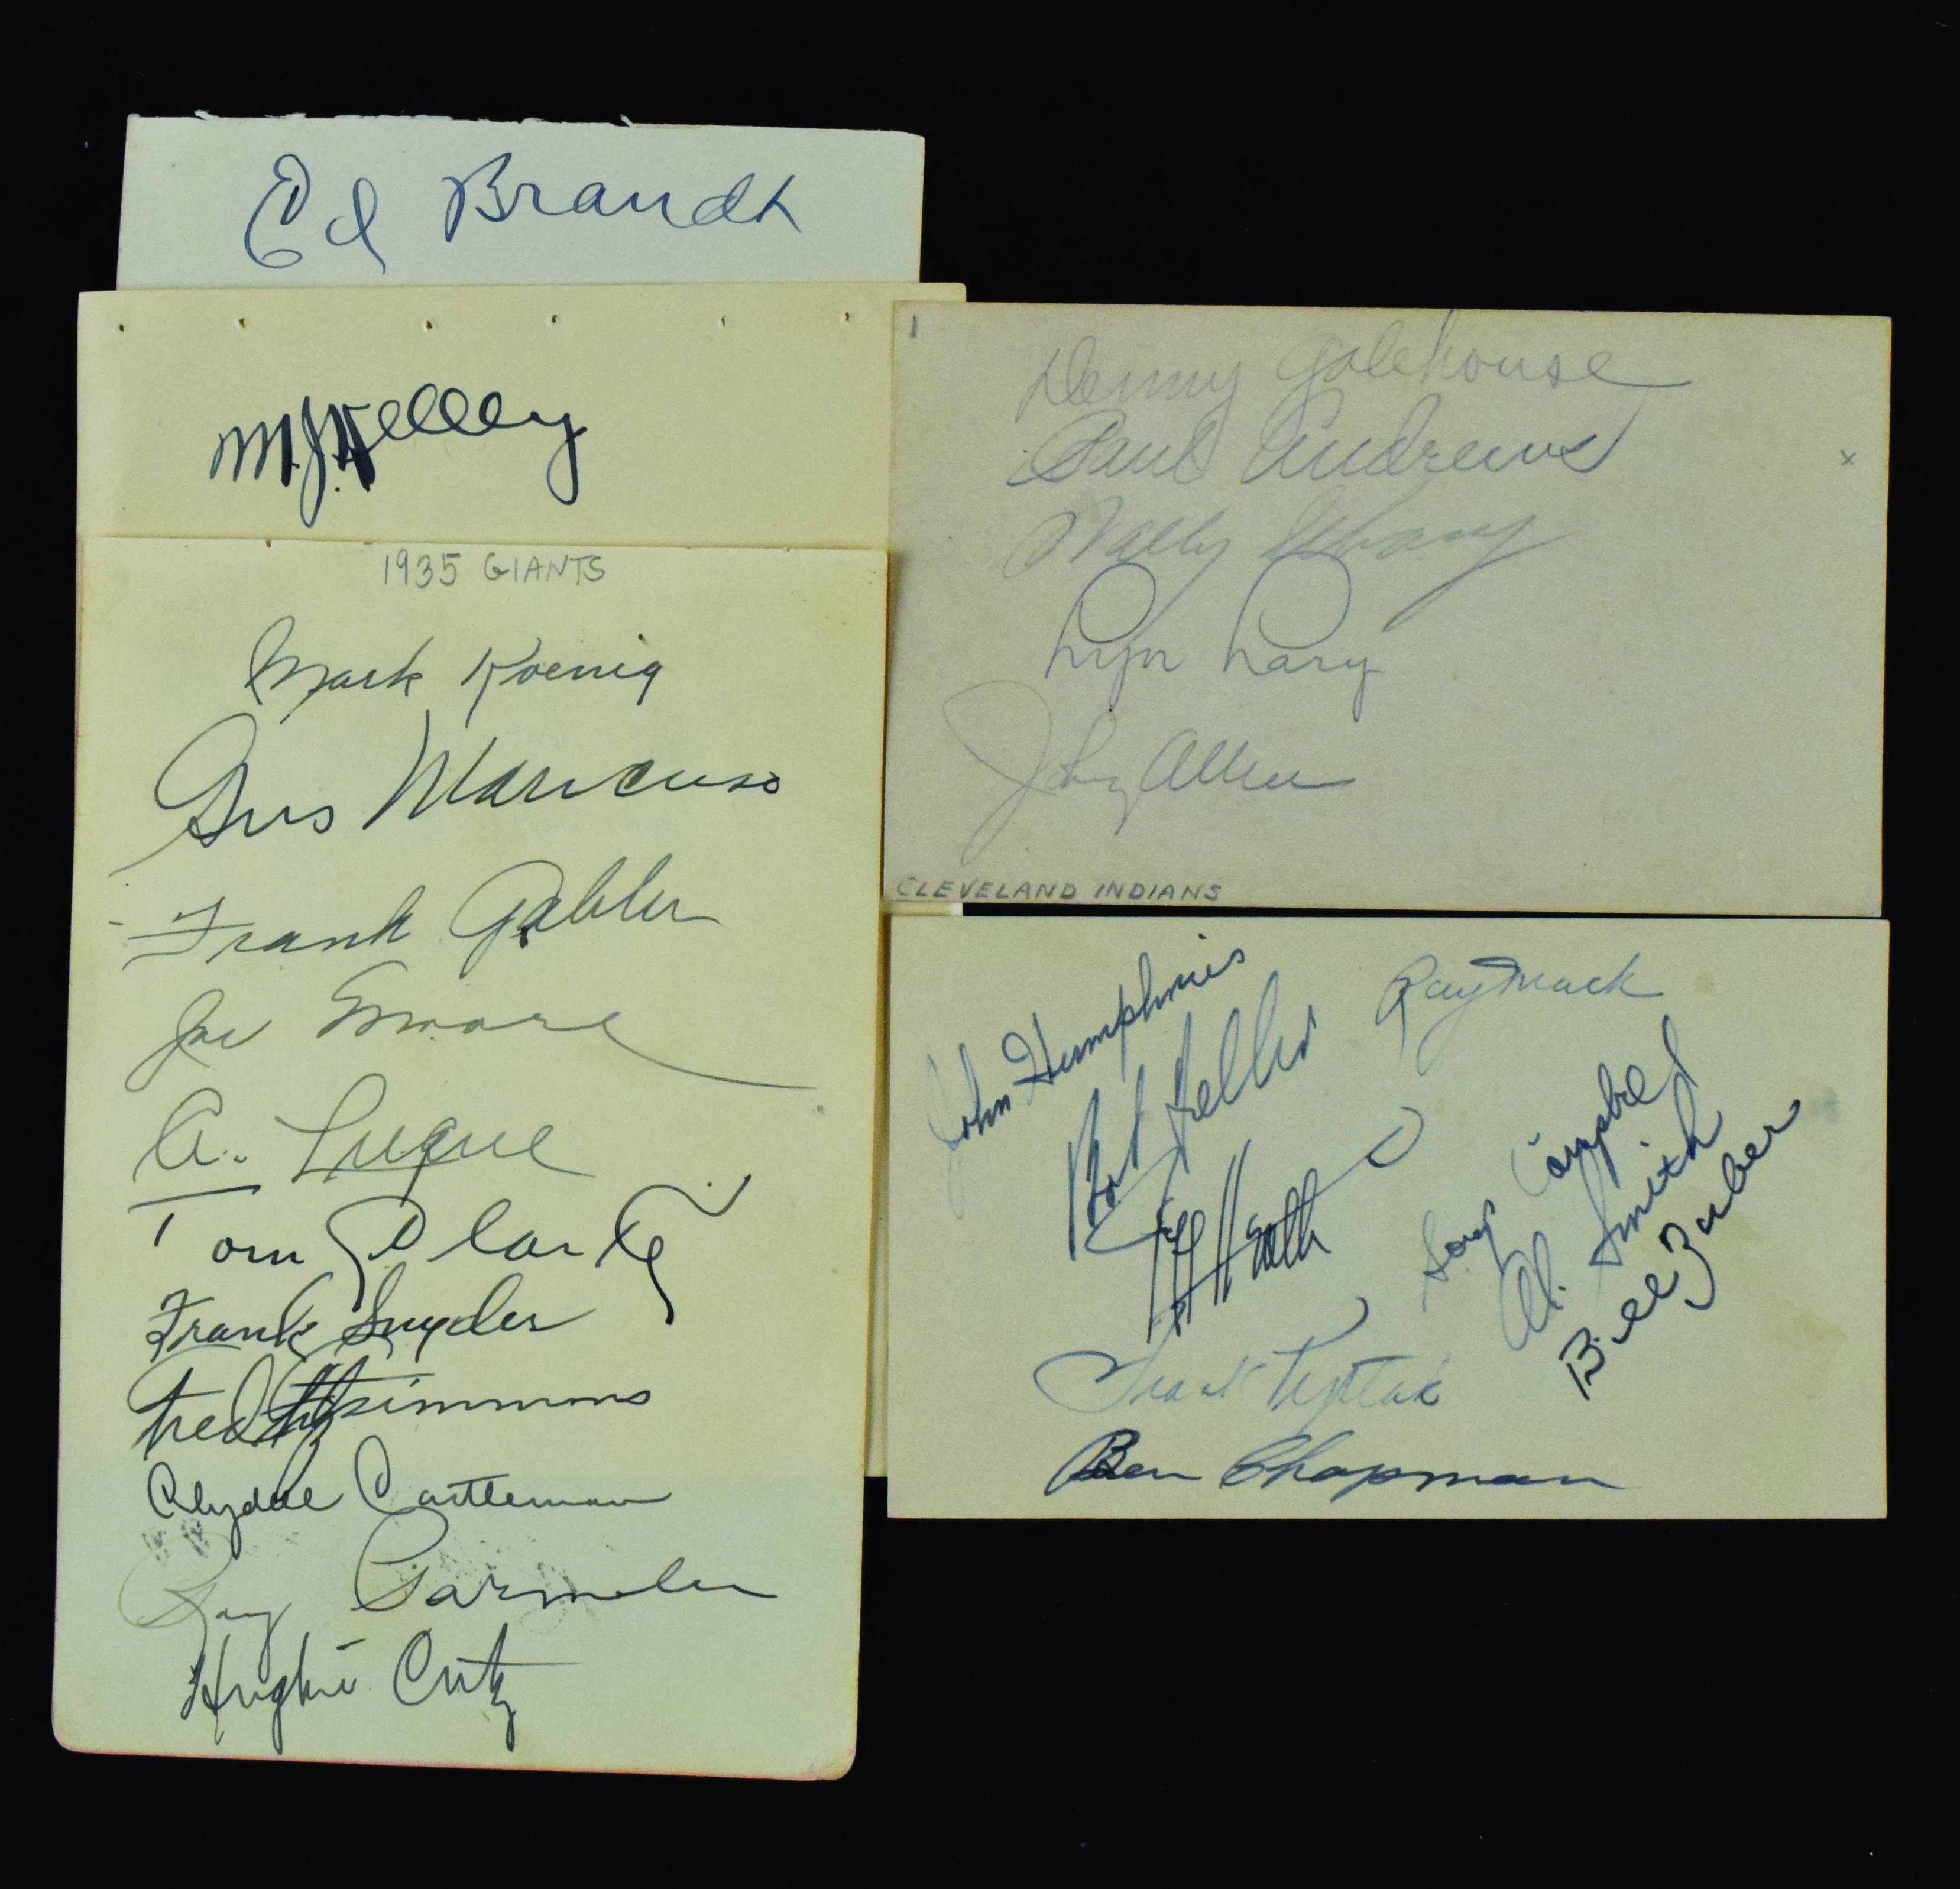 Ed Brandt
M.J. Kelley
1935 GIANTS
Mark Koenig
Gus Mancuso
Frank Gabler
Joe Moore
A. Luque
Tom Clarke
Frank Snyder
Fred Fitzsimmons
Clydell Castleman
Roy Parmelee
Hughie Critz
Denny Galehouse
Paul Andrews
x
Wally
Lyn Lary
Johny Allen
CLEVELAND INDIANS
John Humphries
Bob Feller
Ray Mack
Jeff Heath
Soup Campbell
Al. Smith
Bill Zuber
Frank Pytlak
Ben Chapman